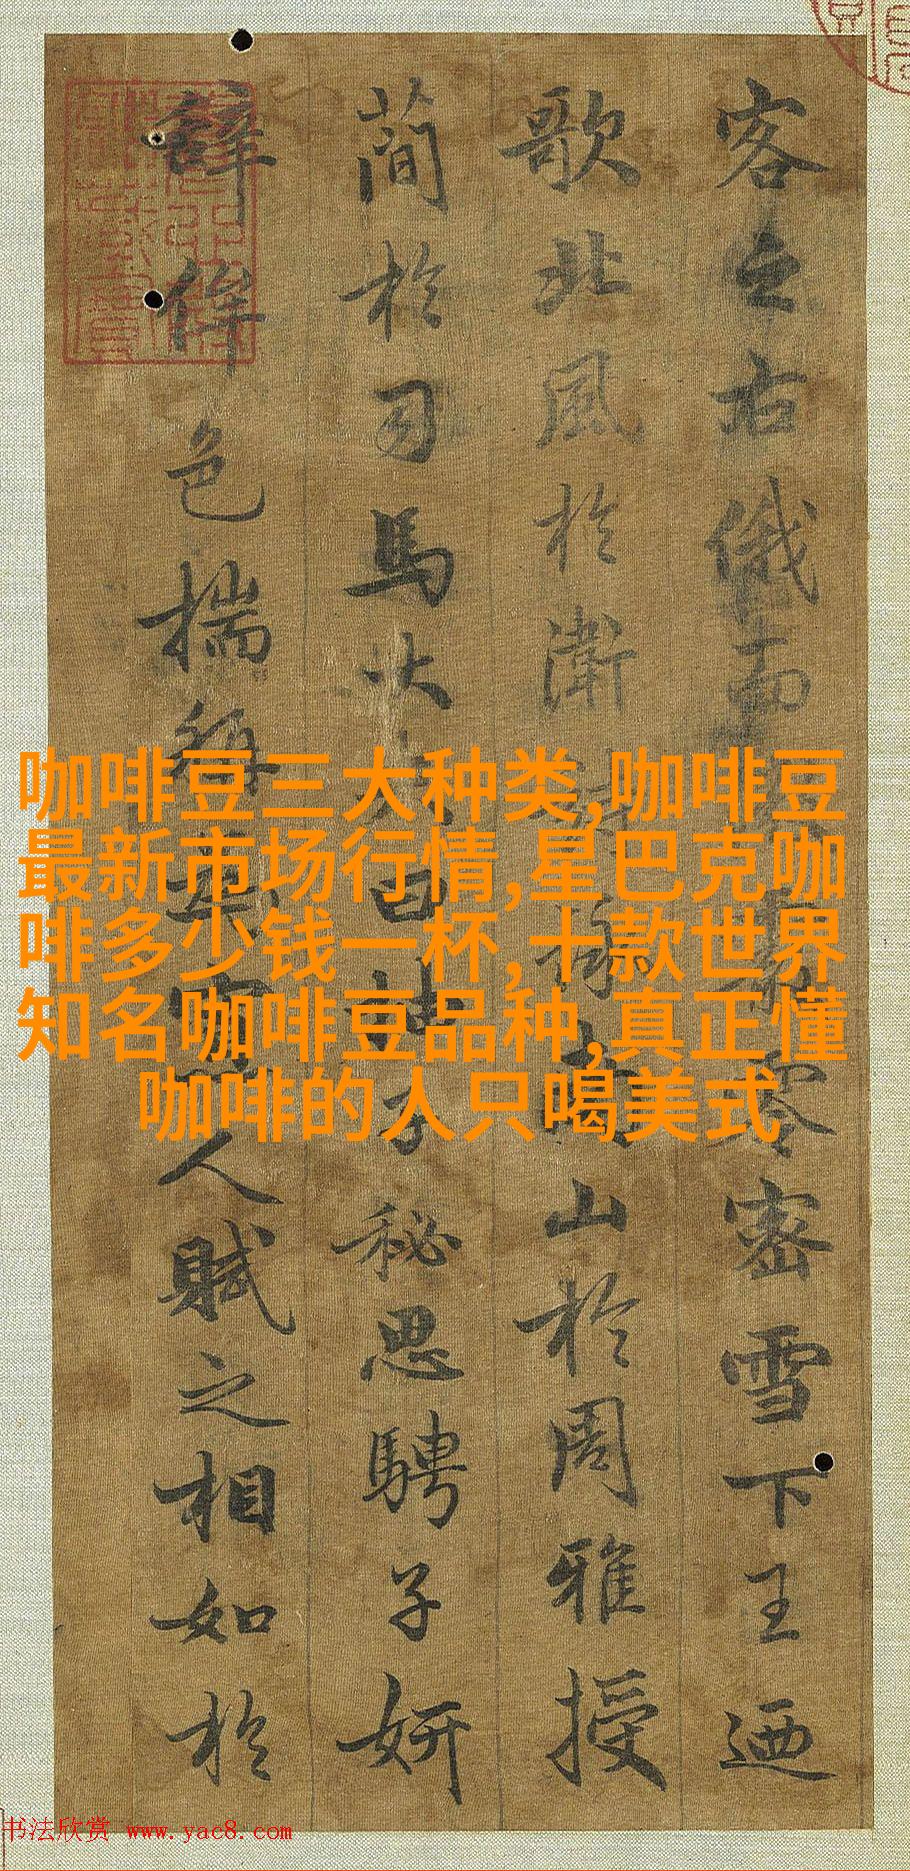 客之右俄而零密雪下王迺
歌北風於衛山於周雅授
簡於司馬大曰抽子秘思騁子妍
辭侔色揣稱人賦之相如於
咖啡豆三大种类,咖啡豆
最新市场行情,星巴克咖
啡多少钱一杯,十款世界
知名咖啡豆品种,真正懂
咖啡的人只喝美式
书法欣赏 www.yac8.com